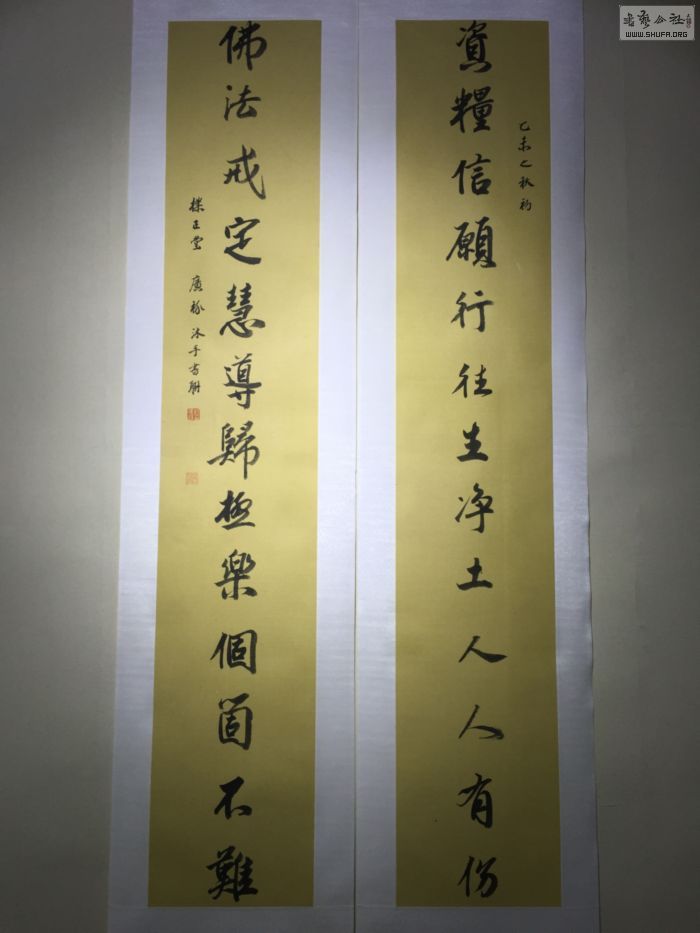 資糧信願行往生净土人人有份
乙未之秋初
佛法戒定慧導歸極樂個箇不難
沐手書
書藝公社
WWW.SHUFA.ORG